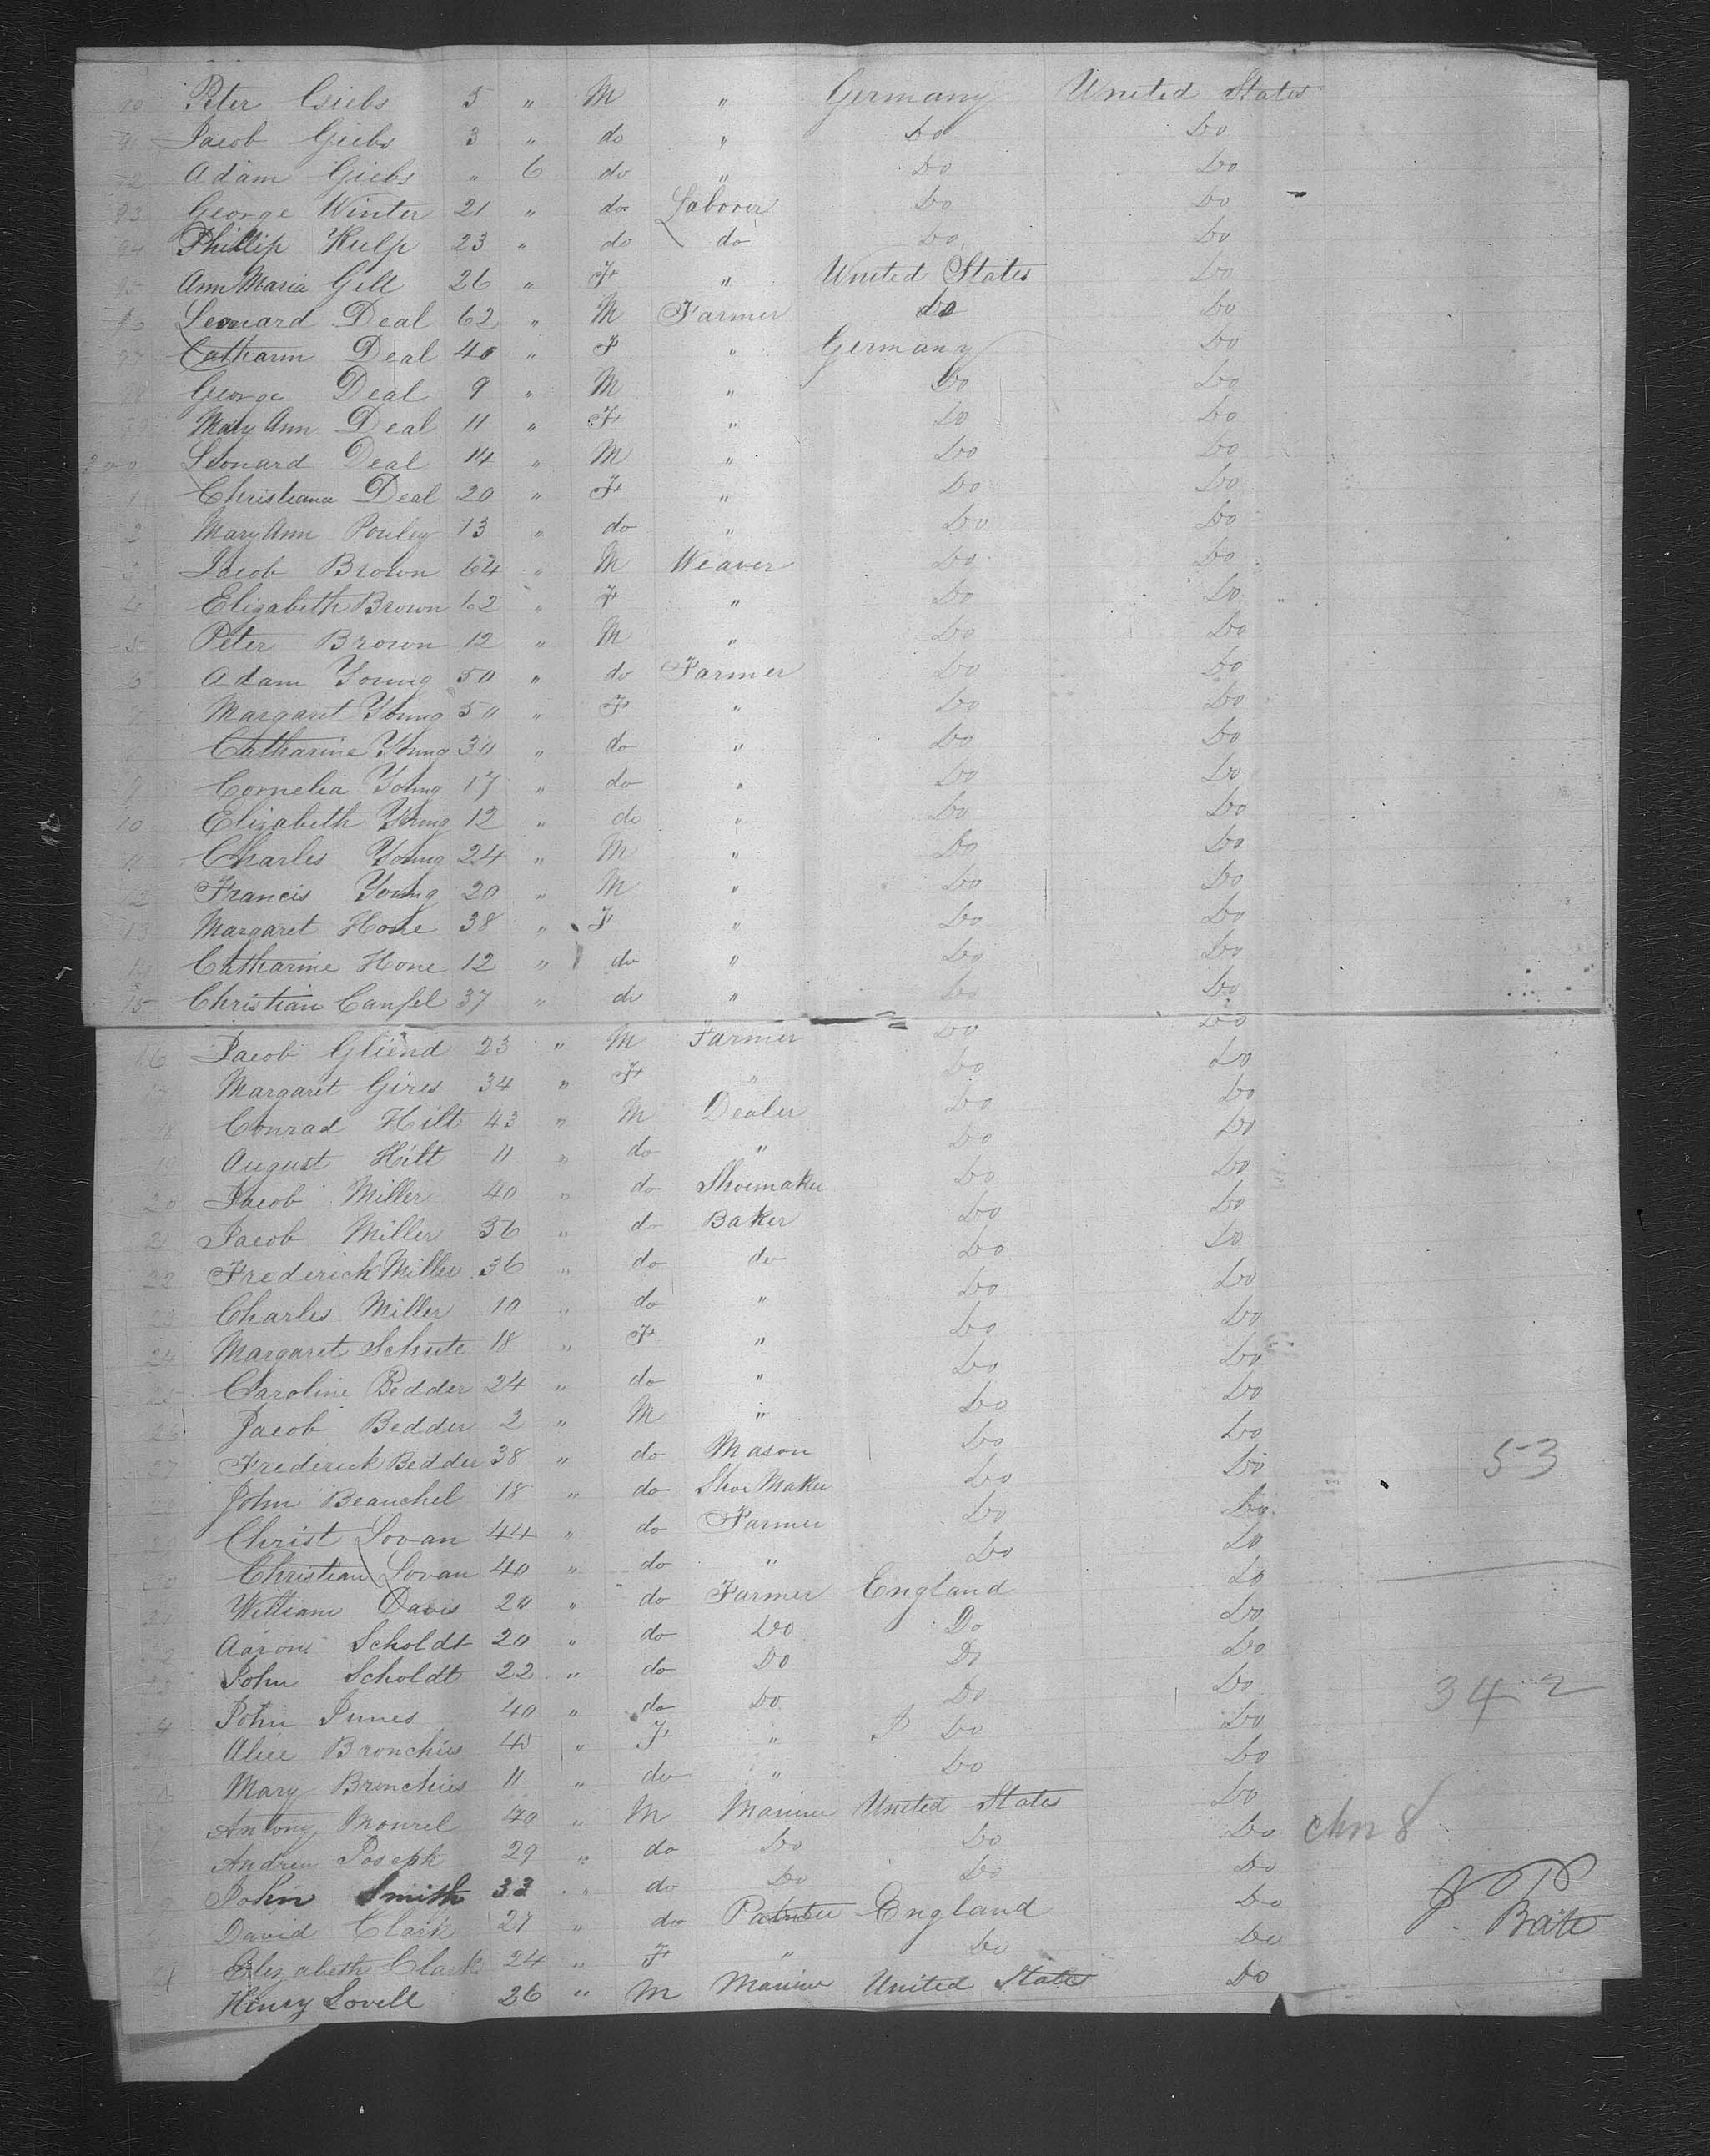 10 Peter Giebs 5 " M " Germany United States
91 Jacob Giebs 3 " do " Do Do
92 Adam Giebs " 6 do " Do Do
93 George Winter 21 " do Laborer Do Do
94 Phillip Kulp 23 " do do Do Do
95 Ann Maria Gell 26 " F " United States Do
96 Leonard Deal 62 " M Farmer do Do
97 Catharin Deal 40 " F " Germany Do
98 George Deal 9 " M " Do Do
99 Mary Ann Deal 11 " F " Do Do
200 Leonard Deal 14 " M " Do Do
1 Christiana Deal 20 " F " Do Do
2 Mary Ann Pouley 13 " do " Do Do
3 Jacob Brown 64 " M Weaver Do Do
4 Elizabeth Brown 62 " F " Do Do
5 Peter Brown 12 " M " Do Do
6 Adam Young 50 " do Farmer Do Do
7 Margaret Young 50 " F " Do Do
8 Catharine Young 30 " do " Do Do
9 Cornelia Young 17 " do " Do Do
10 Elizabeth Young 12 " do " Do Do
11 Charles Young 24 " M " Do Do
12 Francis Young 20 " M " Do Do
13 Margaret Hone 38 " F " Do Do
14 Catharine Hone 12 " do " Do Do
15 Christian Canfel 37 " do " Do Do
16 Jacob Gliend 23 " M Farmer Do Do
17 Margaret Gires 34 " F " Do Do
18 Conrad Hilt 43 " M Dealer Do Do
19 August Hilt 11 " do " Do Do
20 Jacob Miller 40 " do Shoemaker Do Do
21 Jacob Miller 36 " do Baker Do Do
22 Frederick Miller 36 " do do Do Do
23 Charles Miller 10 " do " Do Do
24 Margaret Schute 18 " F " Do Do
25 Caroline Bedder 24 " do " Do Do
26 Jacob Bedder 2 " M " Do Do
27 Frederick Bedder 38 " do Mason Do Do
28 John Beauchel 18 " do Shoe Maker Do Do
53
29 Christ Lovan 44 " do Farmer Do Do
30 Christian Lovan 40 " do " Do Do
31 William Davis 20 " do Farmer England Do
32 Aaron Scholdt 20 " do Do Do Do
33 John Scholdt 22 " do Do Do Do
34 John Junes 40 " do Do Do Do
342
Alice Bronchies 45 " F " Do Do
36 Mary Bronchies 11 " do " Do Do
Antony Mourel 40 " M Mariner United States Do
Andrew Joseph 29 " do Do Do Do
chn 8
John Smith 33 " do Do Do Do
David Clark 27 " do Painter England Do
Elizabeth Clark 24 " F " Do Do
Henry Lovell 26 " M Mariner United States Do